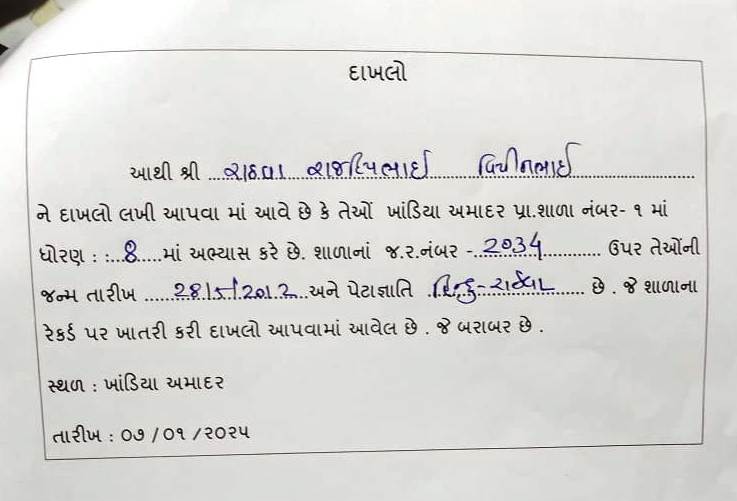 દાખલો
આથી શ્રી ...રાઠવા રાજદિપભાઈ વિપીનભાઈ...
ને દાખલો લખી આપવા માં આવે છે કે તેઓં ખાંડિયા અમાદર પ્રા.શાળા નંબર- ૧ માં
ધોરણ : :..8....માં અભ્યાસ કરે છે. શાળાનાં જ.ર.નંબર -..2034............ ઉપર તેઓંની
જન્મ તારીખ .....28/5/2012...અને પેટાજ્ઞાતિ ..હિન્દુ-રાઠવા...... છે . જે શાળાના
રેકર્ડ પર ખાતરી કરી દાખલો આપવામાં આવેલ છે . જે બરાબર છે .
સ્થળ : ખાંડિયા અમાદર
તારીખ : ૦૭ /૦૧ /૨૦૨૫